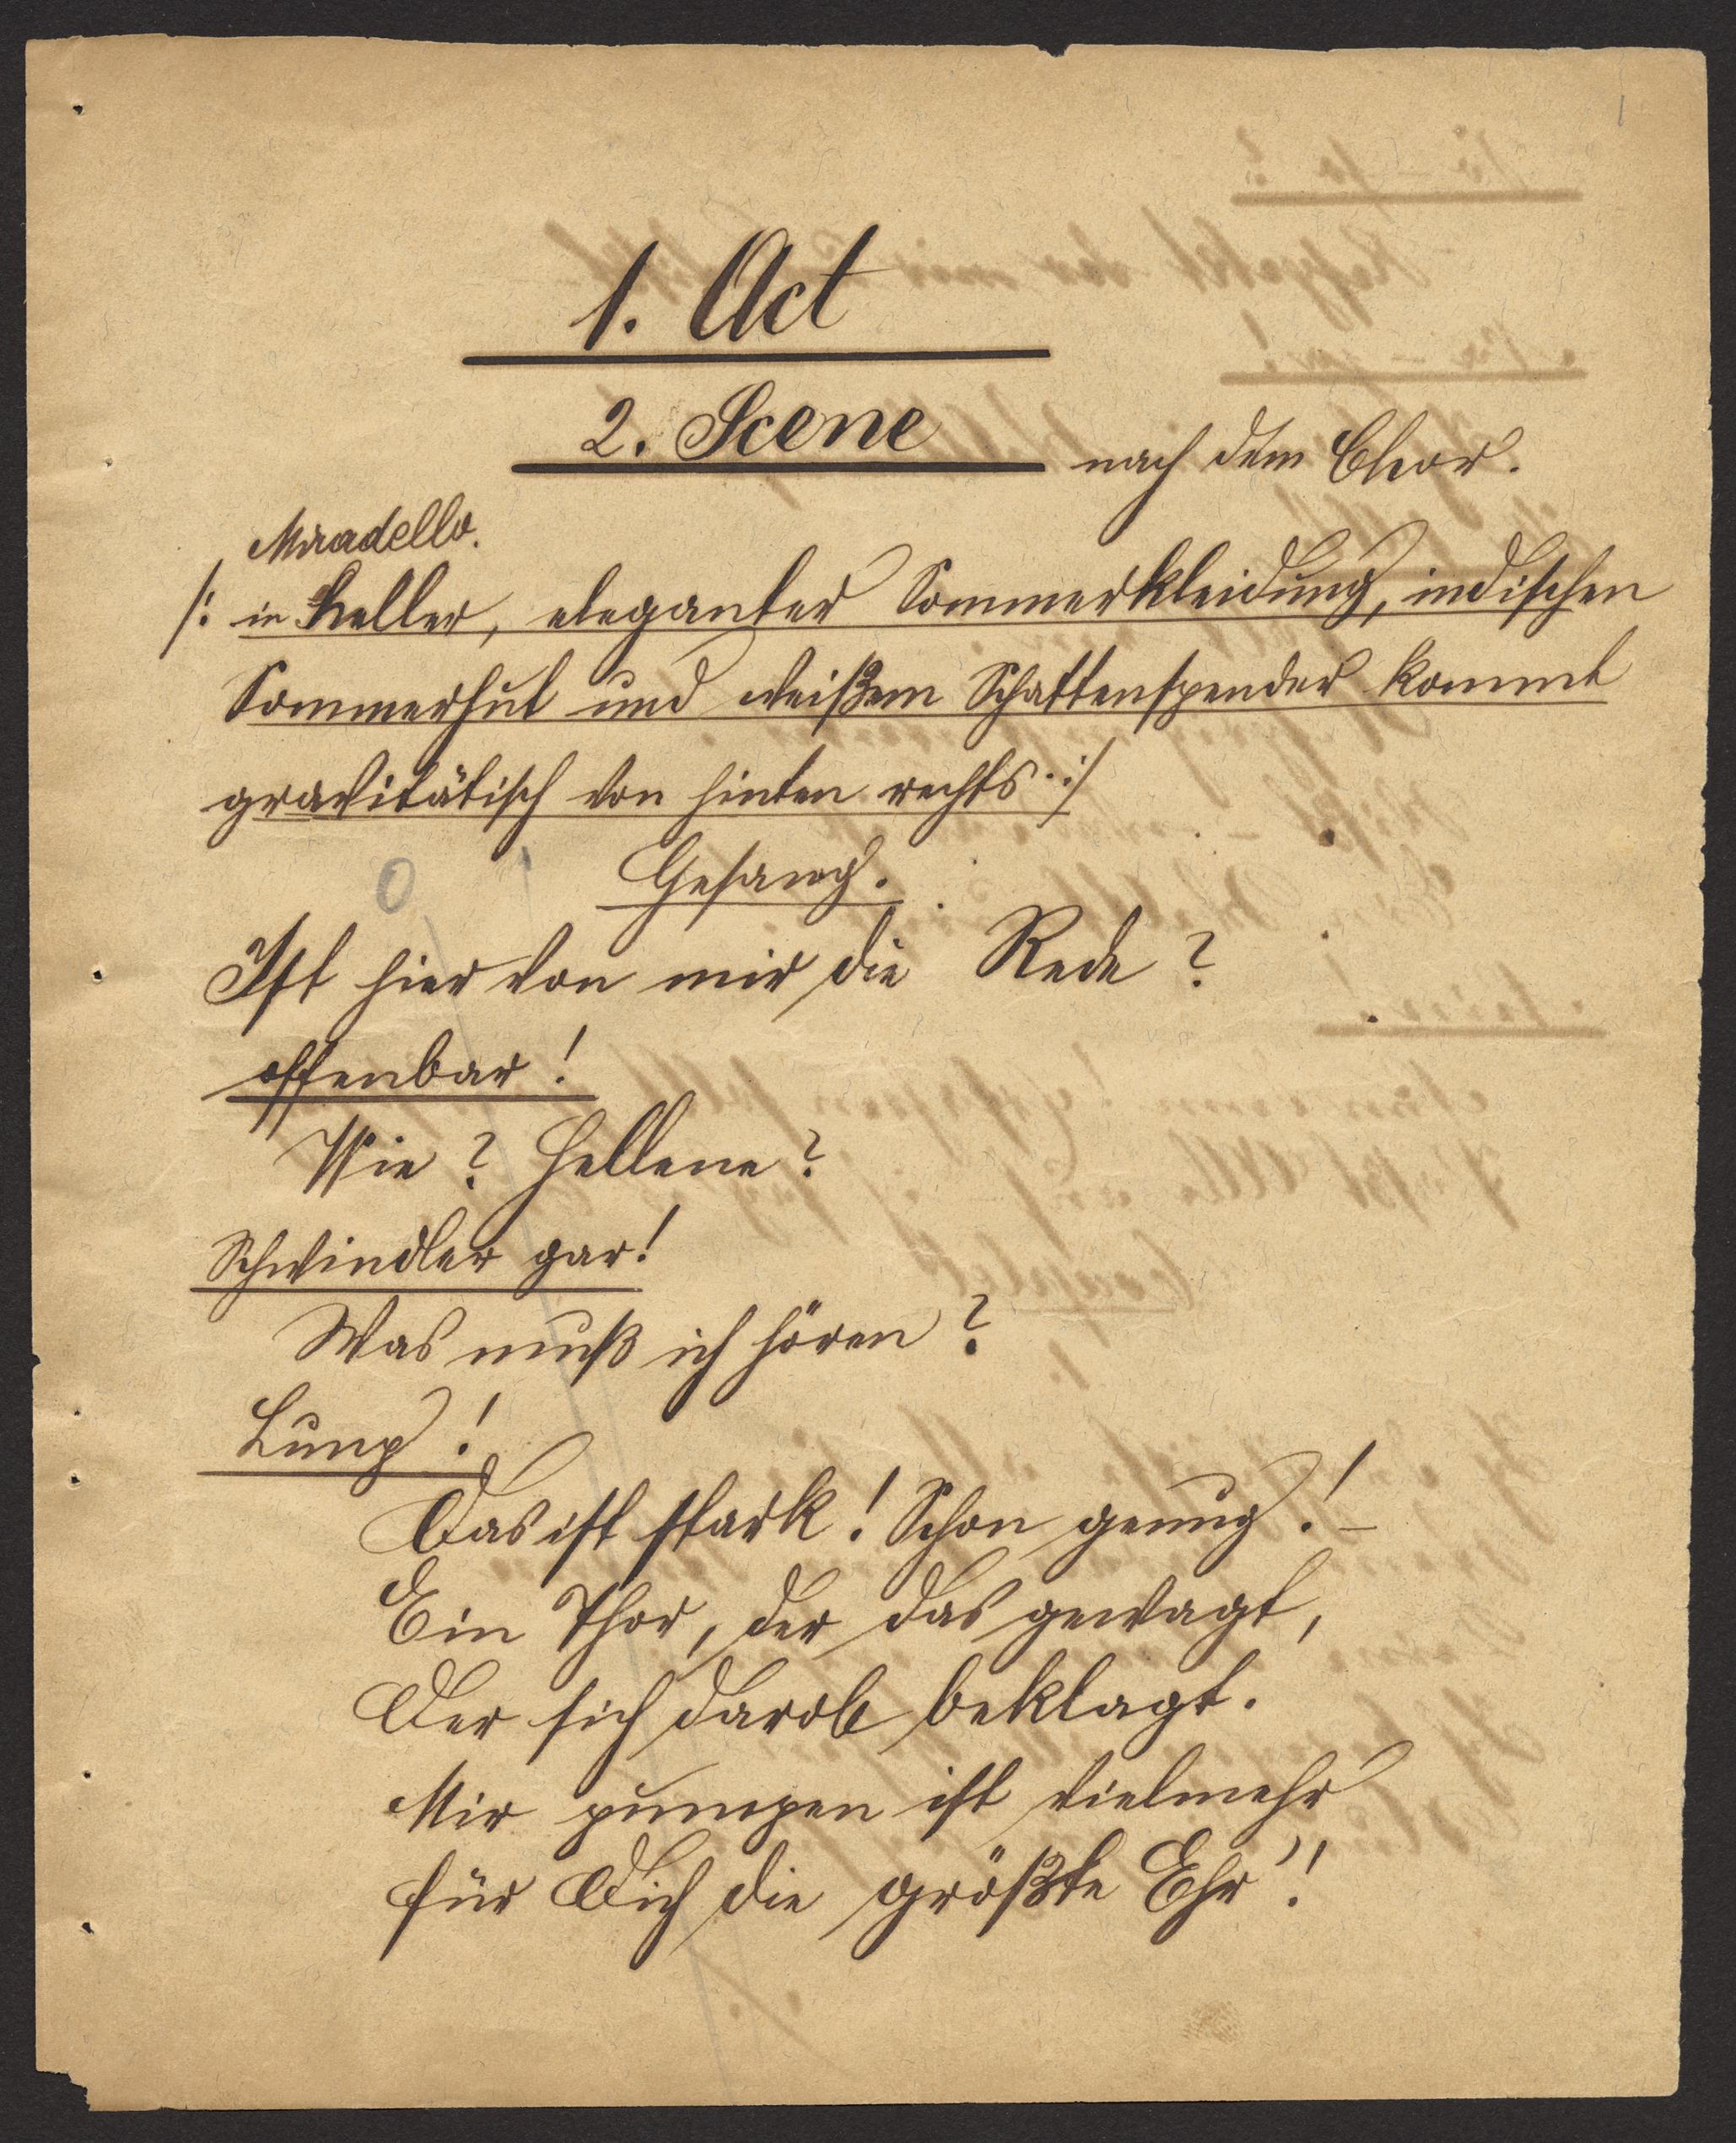 1
1. Act
2. Scene nach dem Chor.
Miradello.
/: in heller, eleganter Sommerkleidung, indischen
Sommerhut und weißem Schattenspender kommt
gravitätisch von hinten rechts. :/
Gesang.
Ist hier von mir die Rede?
offenbar!
Wie? Hellene?
Schwindler gar!
Was muß ich hören?
Lump!
Das ist stark! Schon genug! –
Ein Thor, der das gewagt,
Der sich darob beklagt.
Mir pumpen ist vielmehr
für Dich die größte Ehr'!